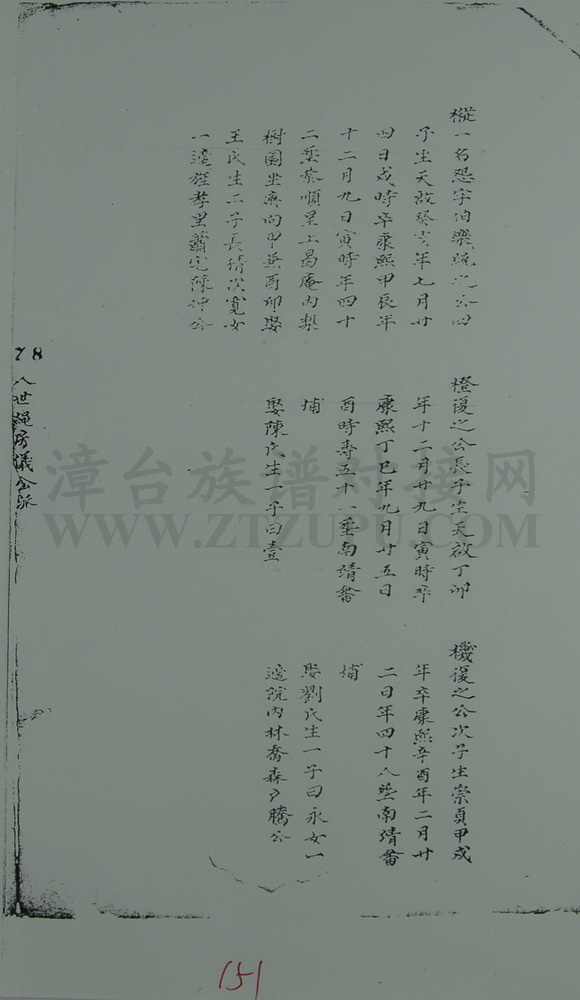 樅一名恩字伯樂統之公四
子生天啟癸亥年七月廿
四日戌時卒康熙甲辰年
十二月九日寅時年四十
二塟恭順里上葛庵內梨
樹園坐庚向甲兼酉卯娶
王氏生二子長績次寬女
一適旌孝里蕭宅陳沖公
橙復之公長子生天啟丁卯
年十二月廿九日寅時卒
康熙丁巳年九月廿五日
酉時壽五十八塟南靖畨
埔
娶陳氏生一子曰壹
機復之公次子生崇貞甲戌
年卒康熙辛酉年二月廿
二日年四十八塟南靖畨
埔
娶劉氏生一子曰永女一
適院內林喬森夕騰公
78
八世繩房議公派
漳台族谱对接网
WWW.ZTZUPU.COM
151